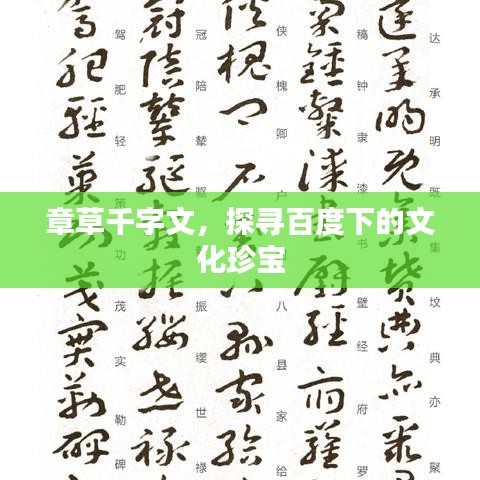 达承明既坟典亦聚
稿钟隶漆书壁经府罗
侠槐卿户八县家给
冠陪辇驱振缨世禄
驾肥轻策功茂实勒碑
章草千字文，探寻百度下的文
化珍宝